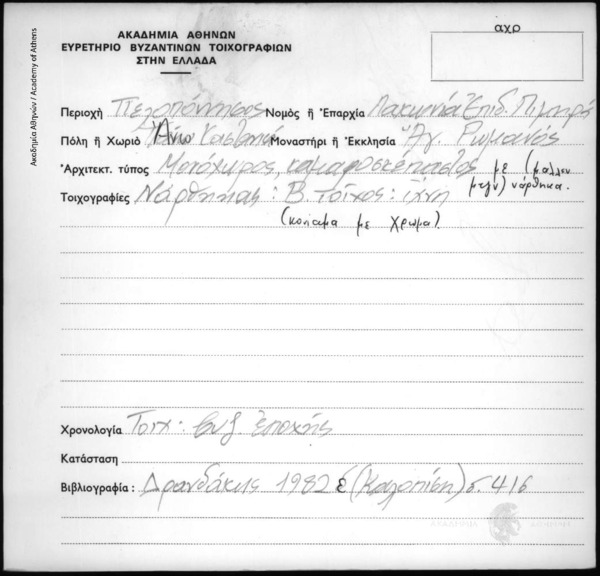 αχρ
ΑΚΑΔΗΜΙΑ ΑΘΗΝΩΝ
ΕΥΡΕΤΗΡΙΟ ΒΥΖΑΝΤΙΝΩΝ ΤΟΙΧΟΓΡΑΦΙΩΝ
ΣΤΗΝ ΕΛΛΑΔΑ
Ακαδημία Αθηνών / Academy of Athens
Περιοχή Πελοπόννησος Νομός ἤ Ἐπαρχία Λακωνία Ἐπιδ. Λιμηρᾶς
Πόλη ἤ Χωριό Άνω Καστανιά Μοναστήρι ἤ Ἐκκλησία Ἅγ. Ρωμανός
Ἀρχιτεκτ. τύπος Μονόχωρος, καμαροσκέπαστος με (μαλλον
Τοιχογραφίες Νάρθηκας: Β. τοίχος: ιχνη μεγν) νάρθηκα.
(κονιαμα με χρωμα).
Χρονολογία Τοιχ: βυζ. ἐποχῆς
Κατάσταση
Βιβλιογραφία: Δρανδάκης 1982 ε (Καλοπίση) σ. 416